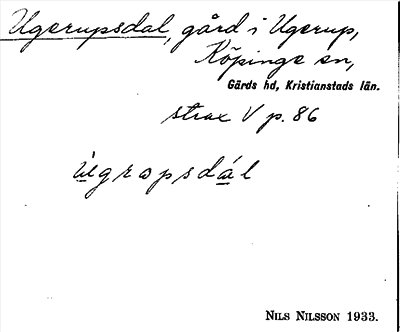 Ugerupsdal, gård i Ugerup,
Köpinge sn,
Gärds hd, Kristianstads län.
strax V p. 86
ùgrapsdál
NILS NILSSON 1933.